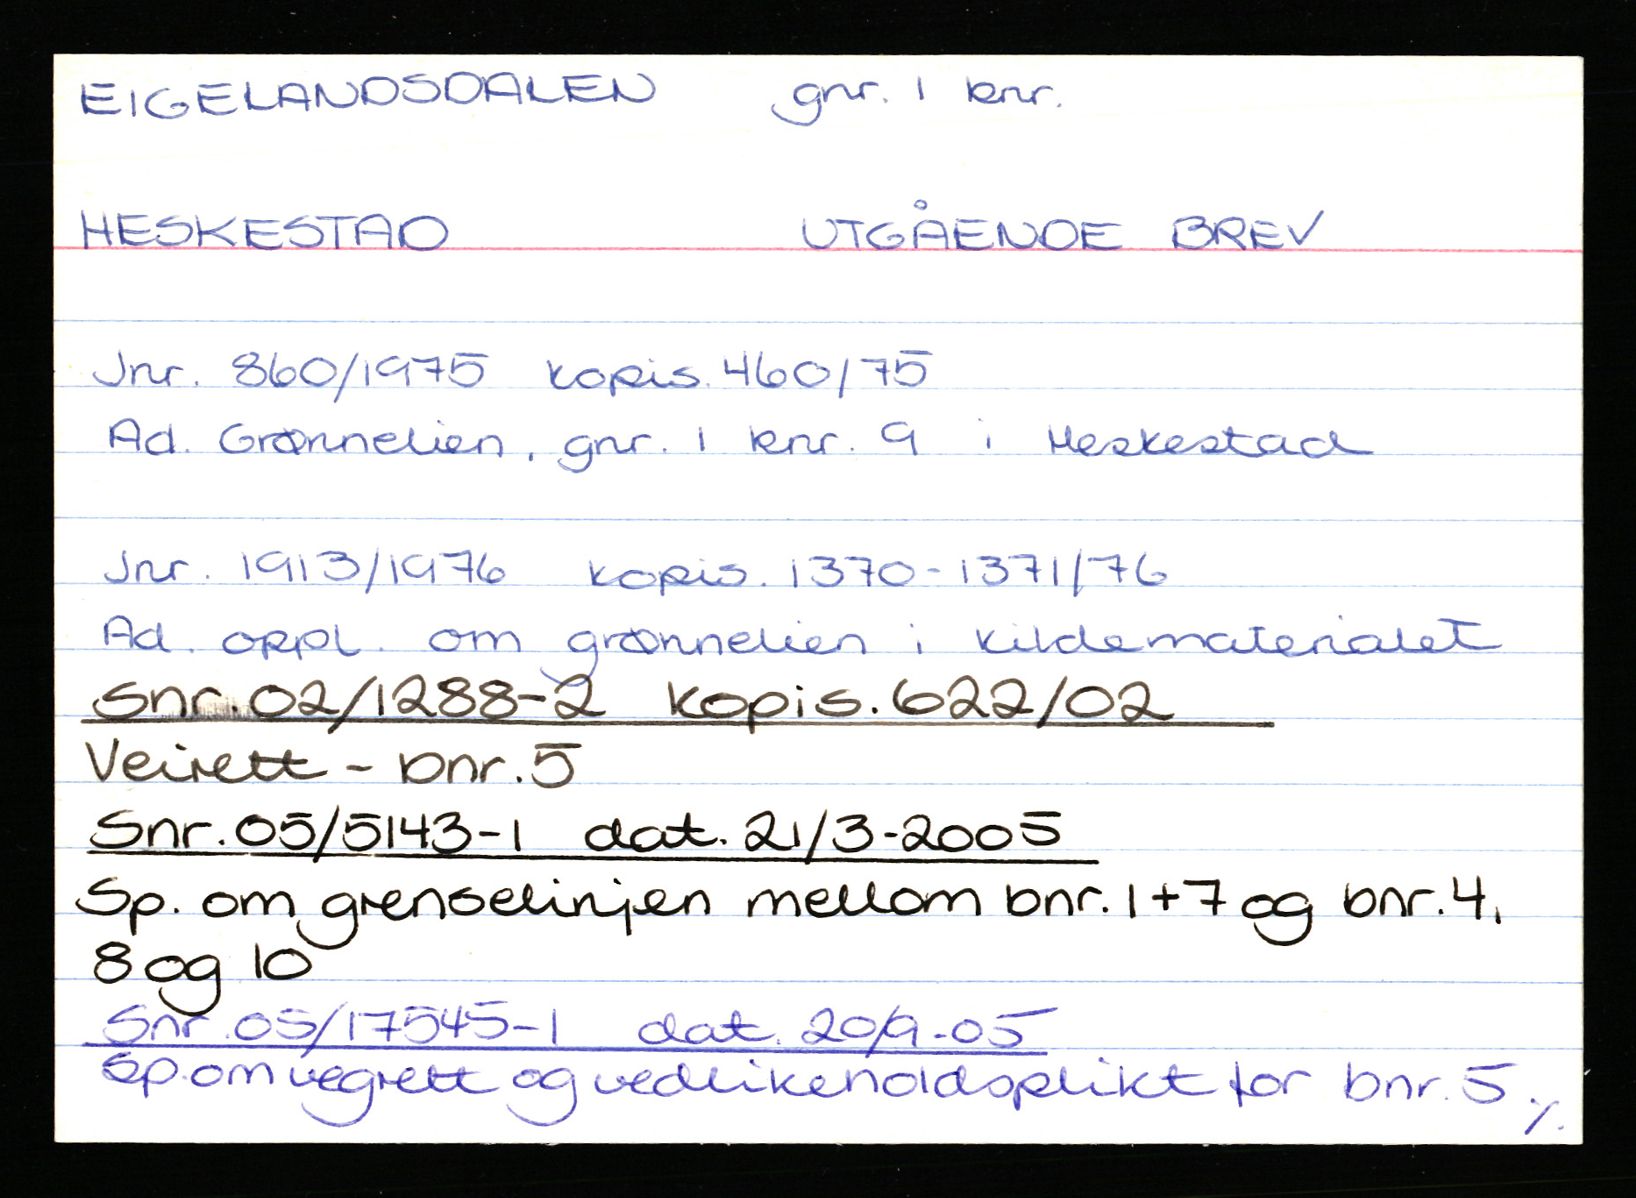 EIGELANDSDALEN gnr. 1 bnr.
HESKESTAD UTGÅENDE BREV
Jnr. 860/1975 kopis. 460/75
Ad. Grønnelien, gnr. 1 bnr. 9 i Heskestad
Jnr. 1913/1976 kopis. 1370-1371/76
Ad. oppl. om grønnelien i kildematerialet
Snr. 02/1288-2 kopis. 622/02
Veirett - bnr. 5
Snr. 05/5143-1 dat. 21/3-2005
Sp. om grenselinjen mellom bnr. 1+7 og bnr. 4,
8 og 10
Snr. 05/17545-1 dat. 20/9-05
Sp. om vegrett og vedlikeholdsplikt for bnr. 5 ./.